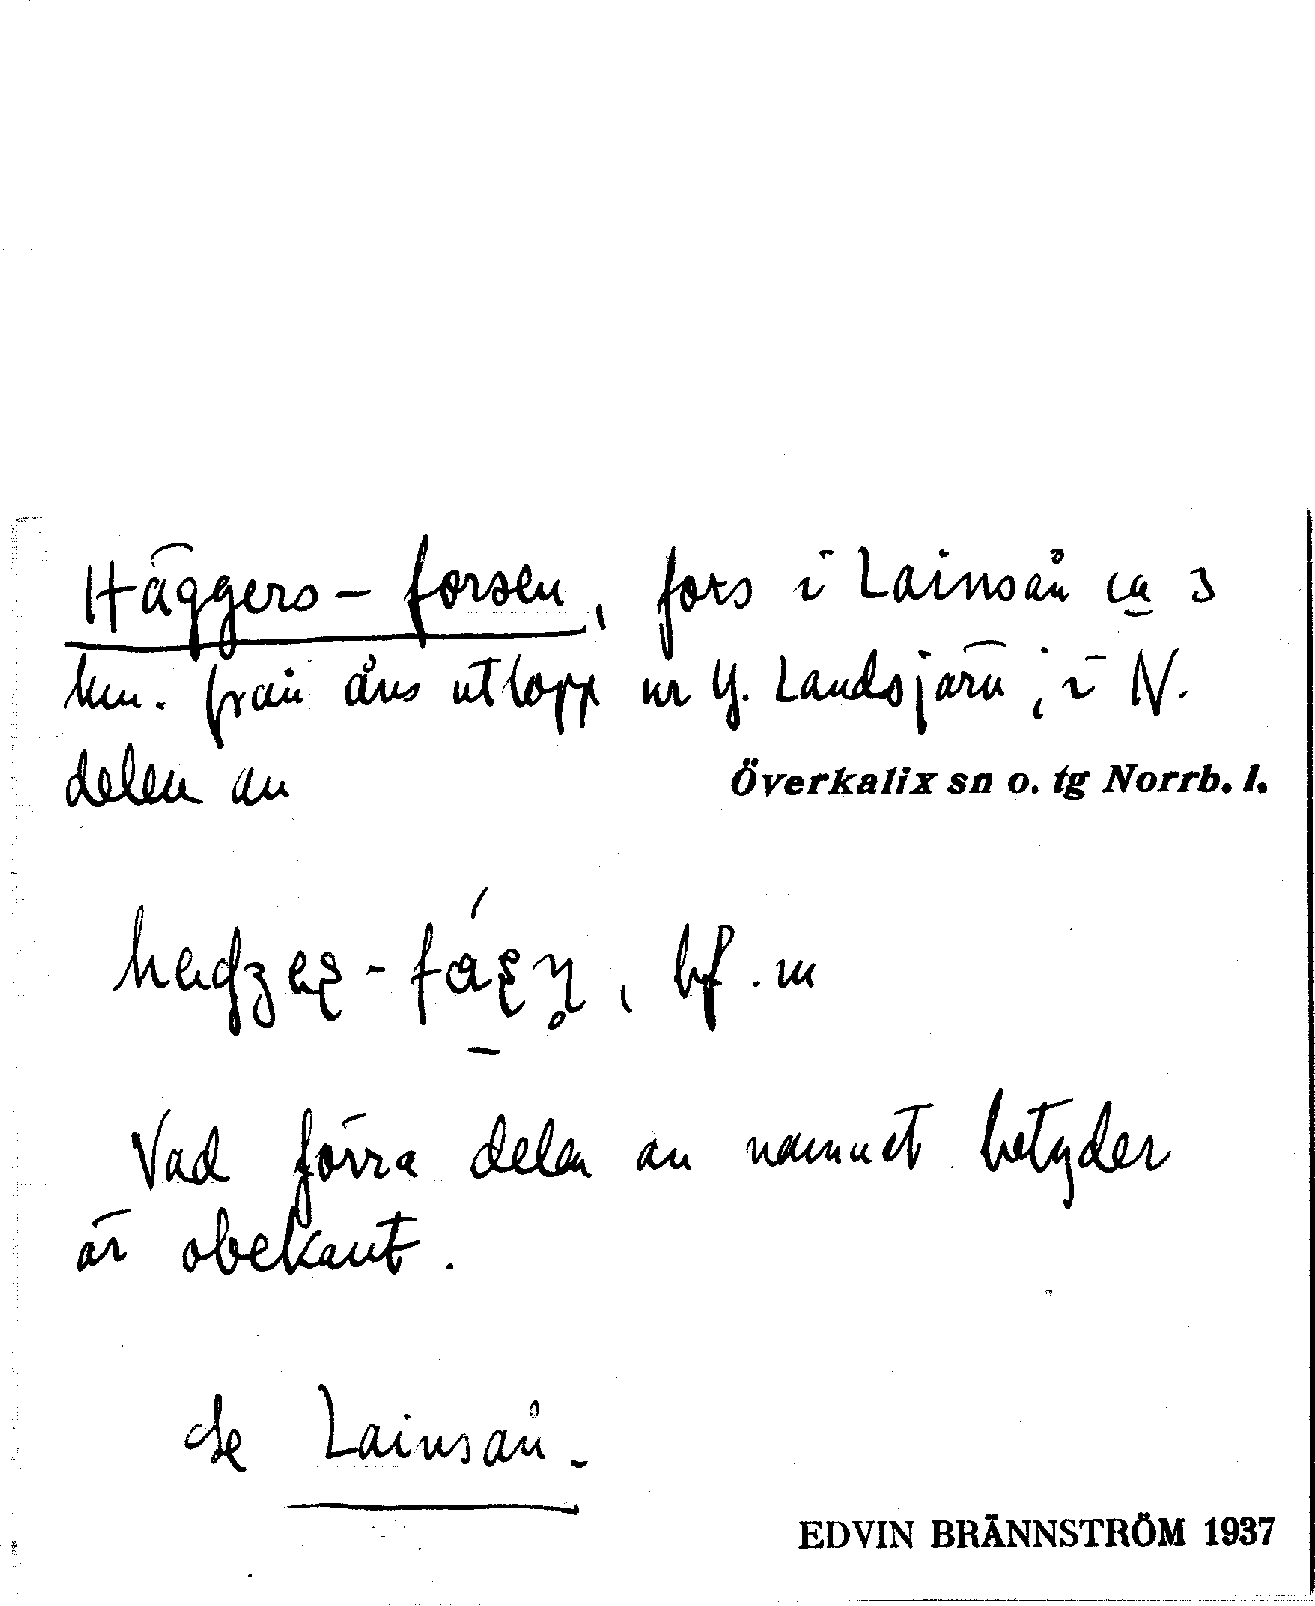 Häggers-forsen, fors i Lainsån ca 3
km. från åns utlopp ur Y. Landsjärv, i N.
delen av Överkalix sn o. tg Norrb. l.
bf. m
Vad förra delen av namnet betyder
är obekant.
Se Lainsån.
EDVIN BRÄNNSTRÖM 1937